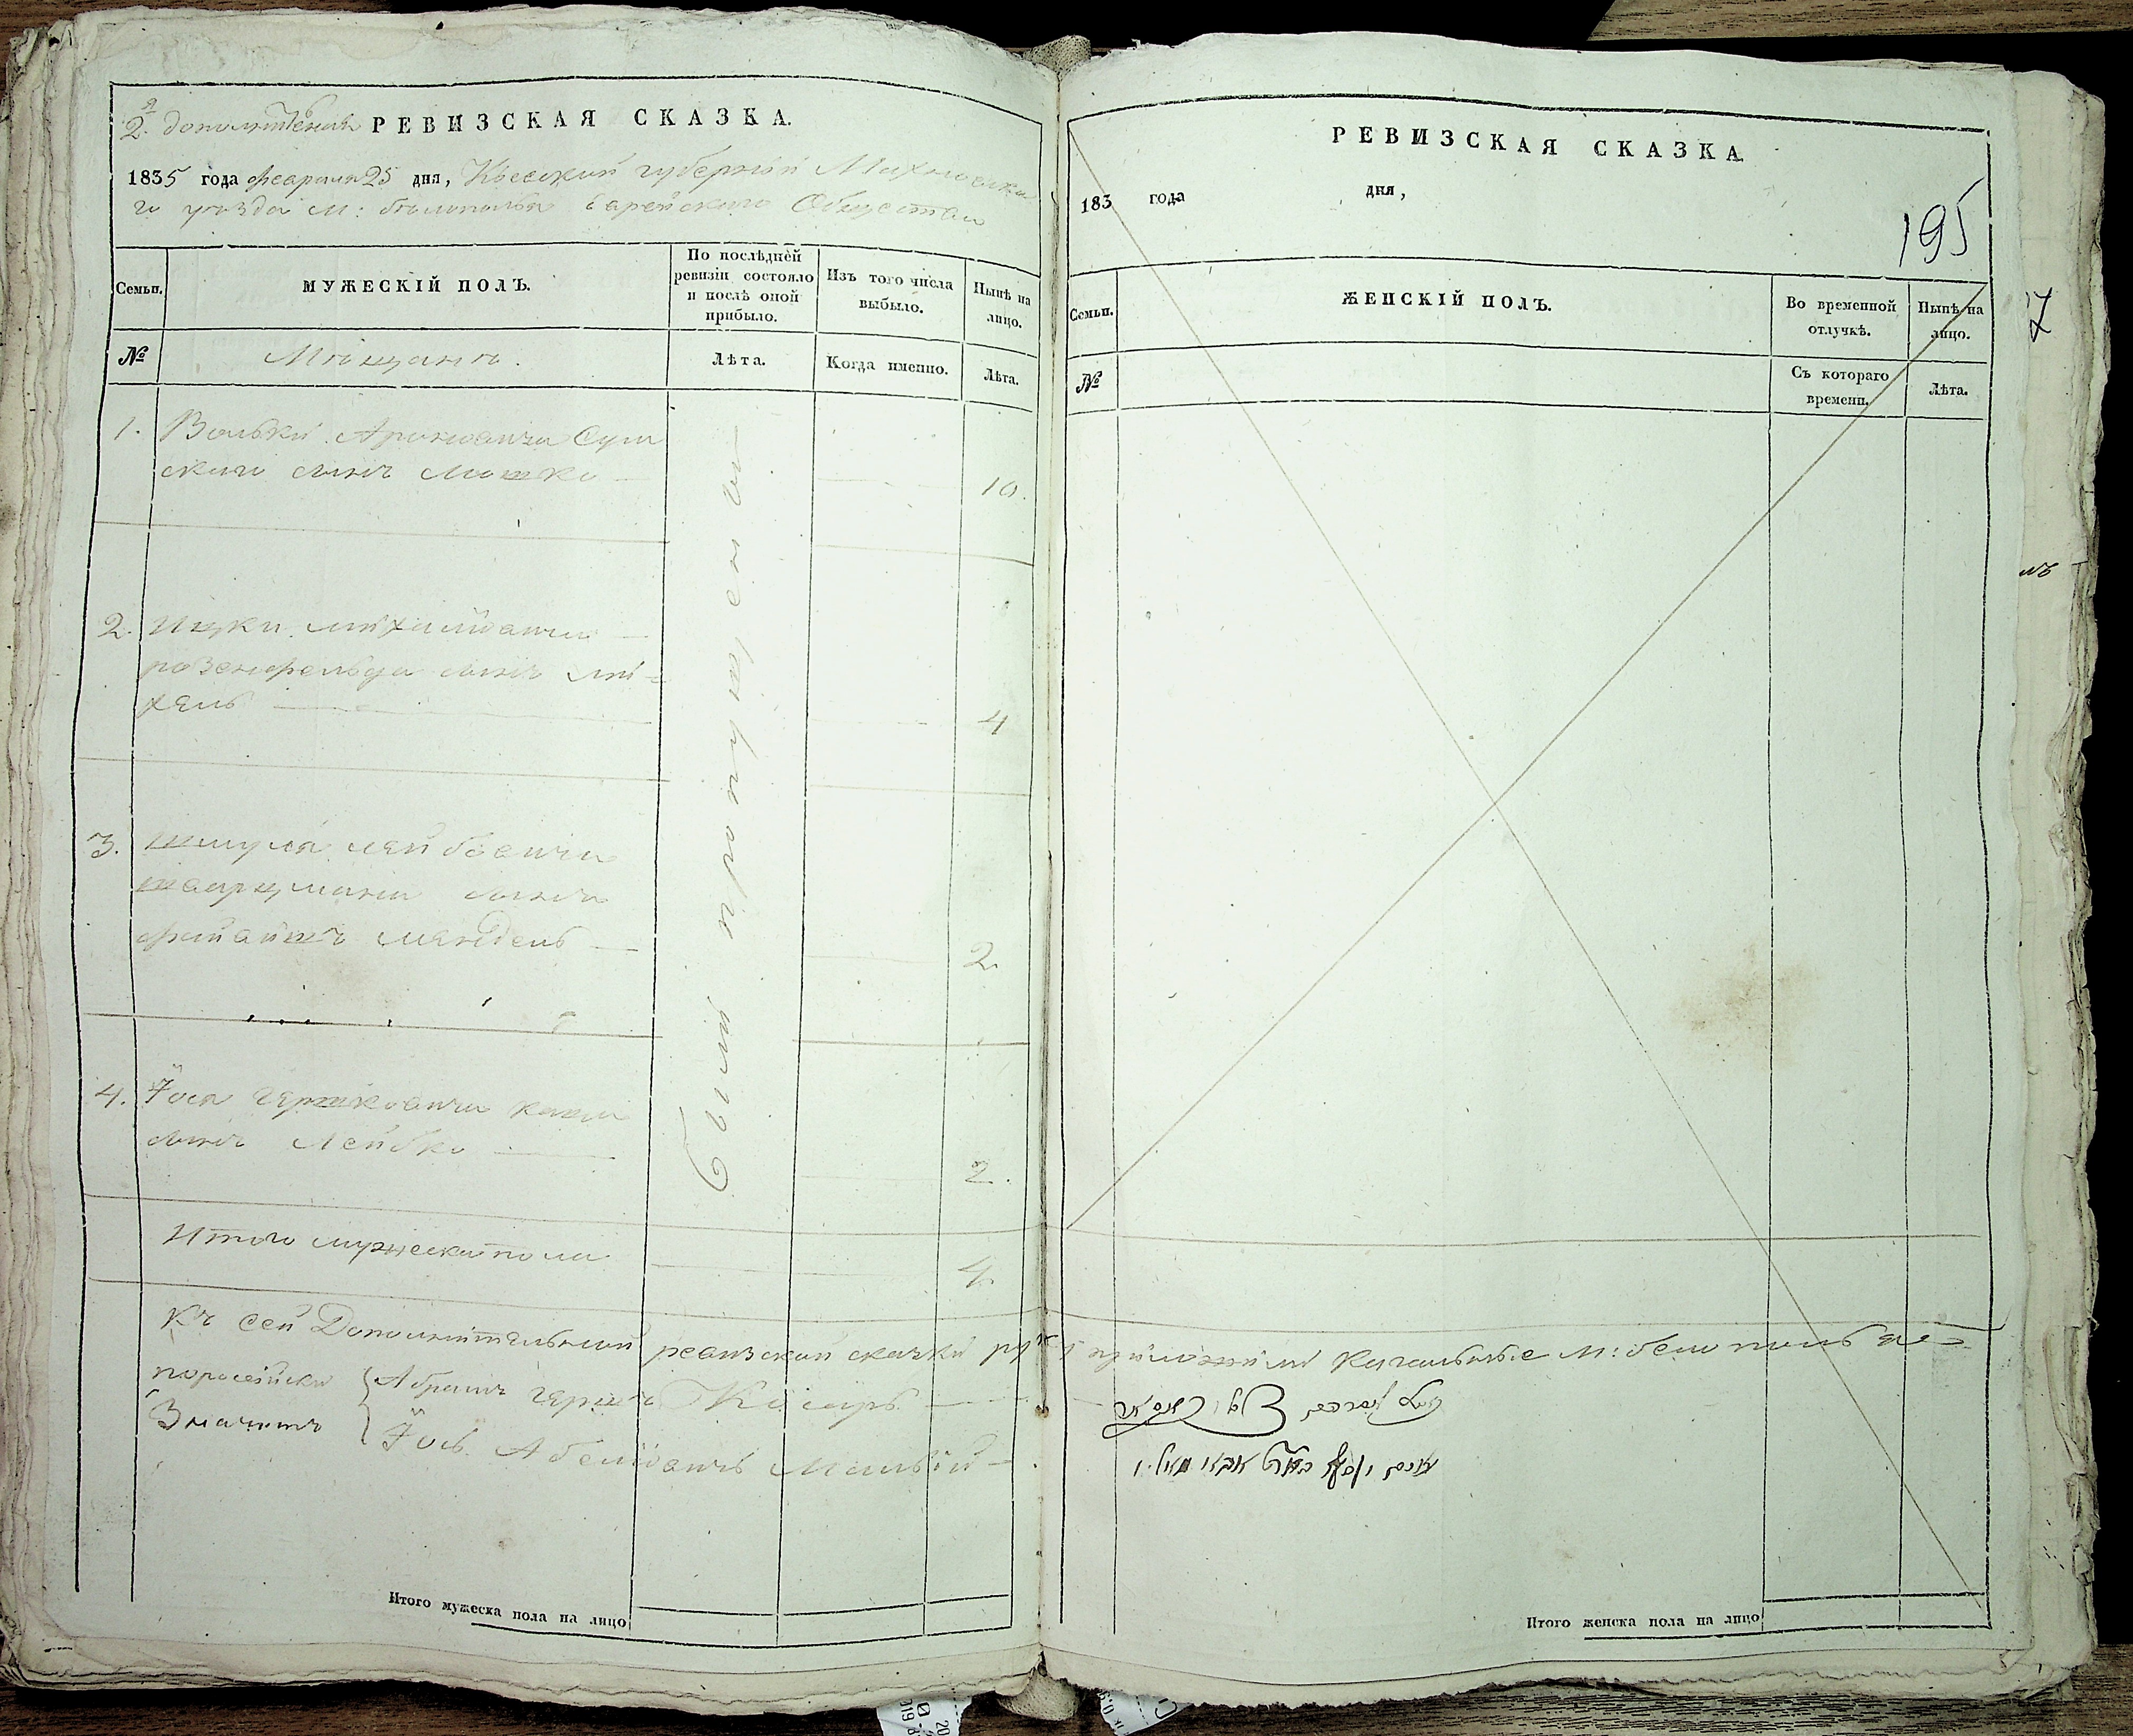 2я дополнительная РЕВИЗСКАЯ СКАЗКА.
1835 года февраля 25 дня, Киевской губернии Махновска
го уезда м: белополья Еврейского Общества
Семьи.
МУЖЕСКІЙ ПОЛЪ.
По послѣдней ревизіи состояло и послѣ оной прибыло.
Изъ того числа выбыло.
Нынѣ на лицо.
№
Мѣщанъ.
Лѣта.
Когда именно.
Лѣта.
1. Волька Ароновича Сум
скаго сынъ Мошко 10.
2. Ицки Михайловича
розенфельда сынъ Ми=
хель 4
3. Шмуля Лейбовича
шварцмана сынъ
Файвишъ Мендель 2.
4. Їося Гершковича каца
сынъ Лейбко 2.
были пропущены
Итого мужеска пола 4.
Къ сей Дополнительной ревизской сказки руки приложили Кагальные м: белополь
поросейски Абрамъ Гершъ
Значитъ Їось
Итого мужеска пола на лицо
РЕВИЗСКАЯ СКАЗКА
183 года дня,
195
Семьи.
ЖЕНСКІЙ ПОЛЪ.
Во временной отлучкѣ.
Нынѣ на лицо.
№
Съ котораго времени.
Лѣта.
Итого женска пола на лицо
7
лъ